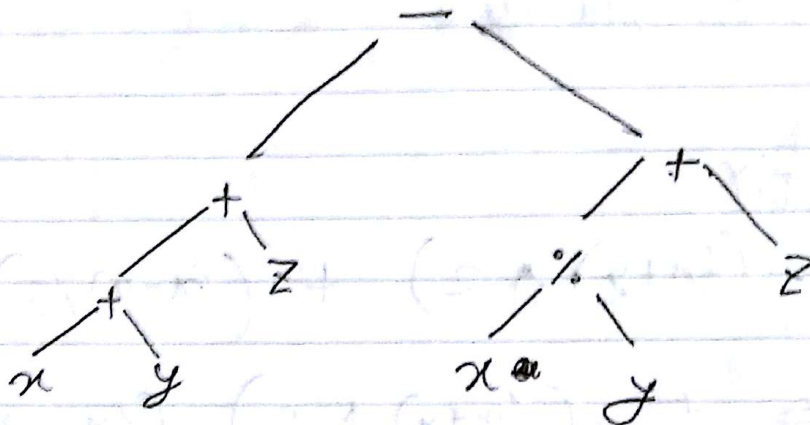 −
+ +
+ z % z
x y x y